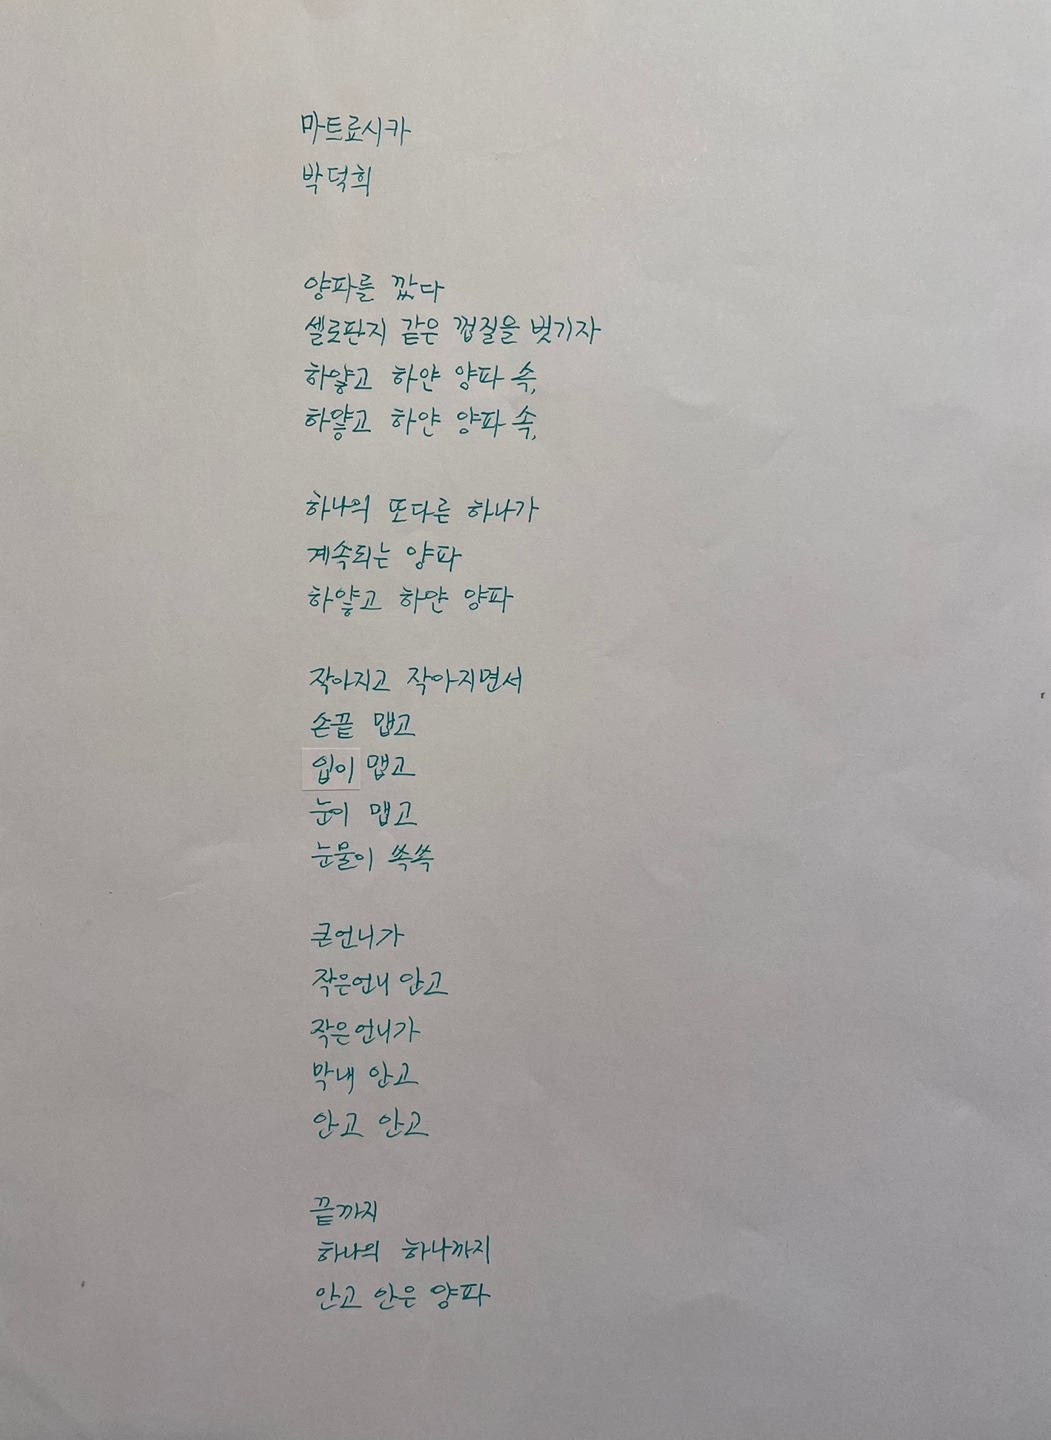 마트료시카
박덕희
양파를 깠다
셀로판지 같은 껍질을 벗기자
하얗고 하얀 양파 속,
하얗고 하얀 양파 속,
하나의 또다른 하나가
계속되는 양파
하얗고 하얀 양파
작아지고 작아지면서
손끝 맵고
입이 맵고
눈이 맵고
눈물이 쏙쏙
큰언니가
작은언니 안고
작은언니가
막내 안고
안고 안고
끝까지
하나의 하나까지
안고 안은 양파